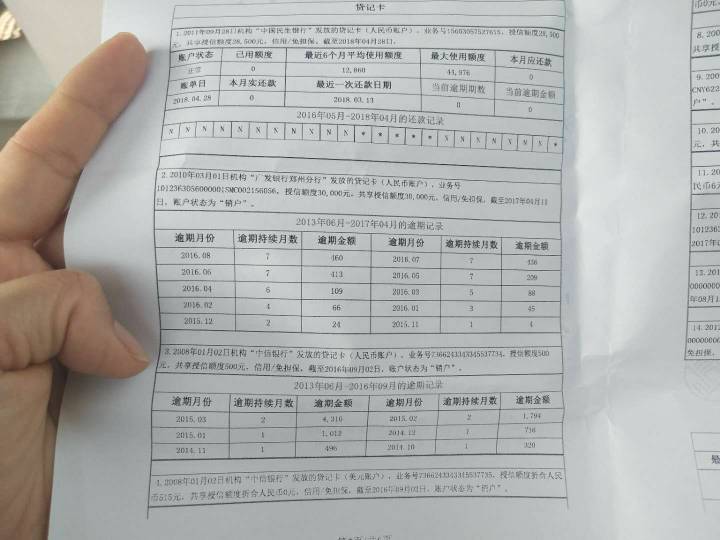 贷记卡
1.2011年09月28日机构"中国民生银行"发放的贷记卡（人民币账户），业务号15603057527615，授信额度28,500
元，共享授信额度28,500元，信用/免担保，截至2018年04月28日，
账户状态 已用额度 最近6个月平均使用额度 最大使用额度 本月应还款
正常 0 12,860 44,976 0
账单日 本月实还款 最近一次还款日期 当前逾期期数 当前逾期金额
2018.04.28 0 2018.03.13 0 0
2016年05月-2018年04月的还款记录
N N N N N N N N N N N * * * * * N N N N N N N *
2.2010年03月01日机构"广发银行郑州分行"发放的贷记卡（人民币账户），业务号
101236305600001SMC002156056，授信额度30,000元，共享授信额度30,000元，信用/免担保，截至2017年04月11
日，账户状态为"销户"。
2013年06月-2017年04月的逾期记录
逾期月份 逾期持续月数 逾期金额 逾期月份 逾期持续月数 逾期金额
2016.08 7 460 2016.07 7 436
2016.06 7 413 2016.05 7 209
2016.04 6 109 2016.03 5 88
2016.02 4 66 2016.01 3 45
2015.12 2 24 2015.11 1 4
3.2008年01月02日机构"中信银行"发放的贷记卡（人民币账户），业务号7366243343345537734，授信额度500
元，共享授信额度500元，信用/免担保，截至2016年09月02日，账户状态为"销户"。
2013年06月-2016年09月的逾期记录
逾期月份 逾期持续月数 逾期金额 逾期月份 逾期持续月数 逾期金额
2015.03 2 4,316 2015.02 2 1,794
2015.01 1 1,012 2014.12 1 736
2014.11 1 496 2014.10 1 320
4.2008年01月02日机构"中信银行"发放的贷记卡（美元账户），业务号7366243343345537735，授信额度折合人民
币515元，共享授信额度折合人民币0元，信用/免担保，截至2016年09月02日，账户状态为"销户"。
币0元，
8.200
共享授
9.200
CNY622
户"。
10.20
元，共
11.20
民币6
12.201
1012363
2017年0
13.201
0000000
年08月1
14.2012
0000000
免担保，
最